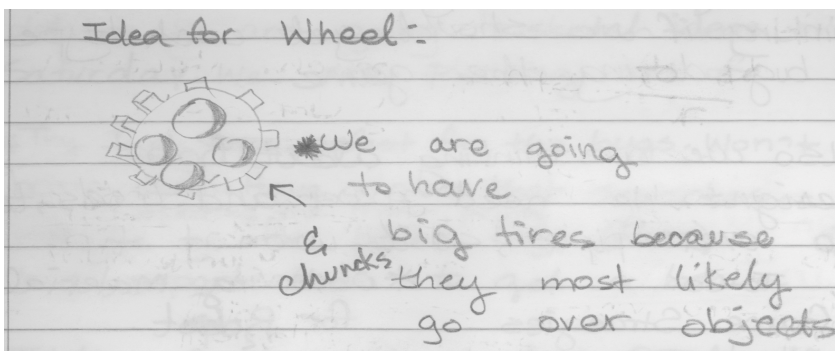 Idea for Wheel:
*We are going
to have
& big tires because
chuncks they most likely
go over objects